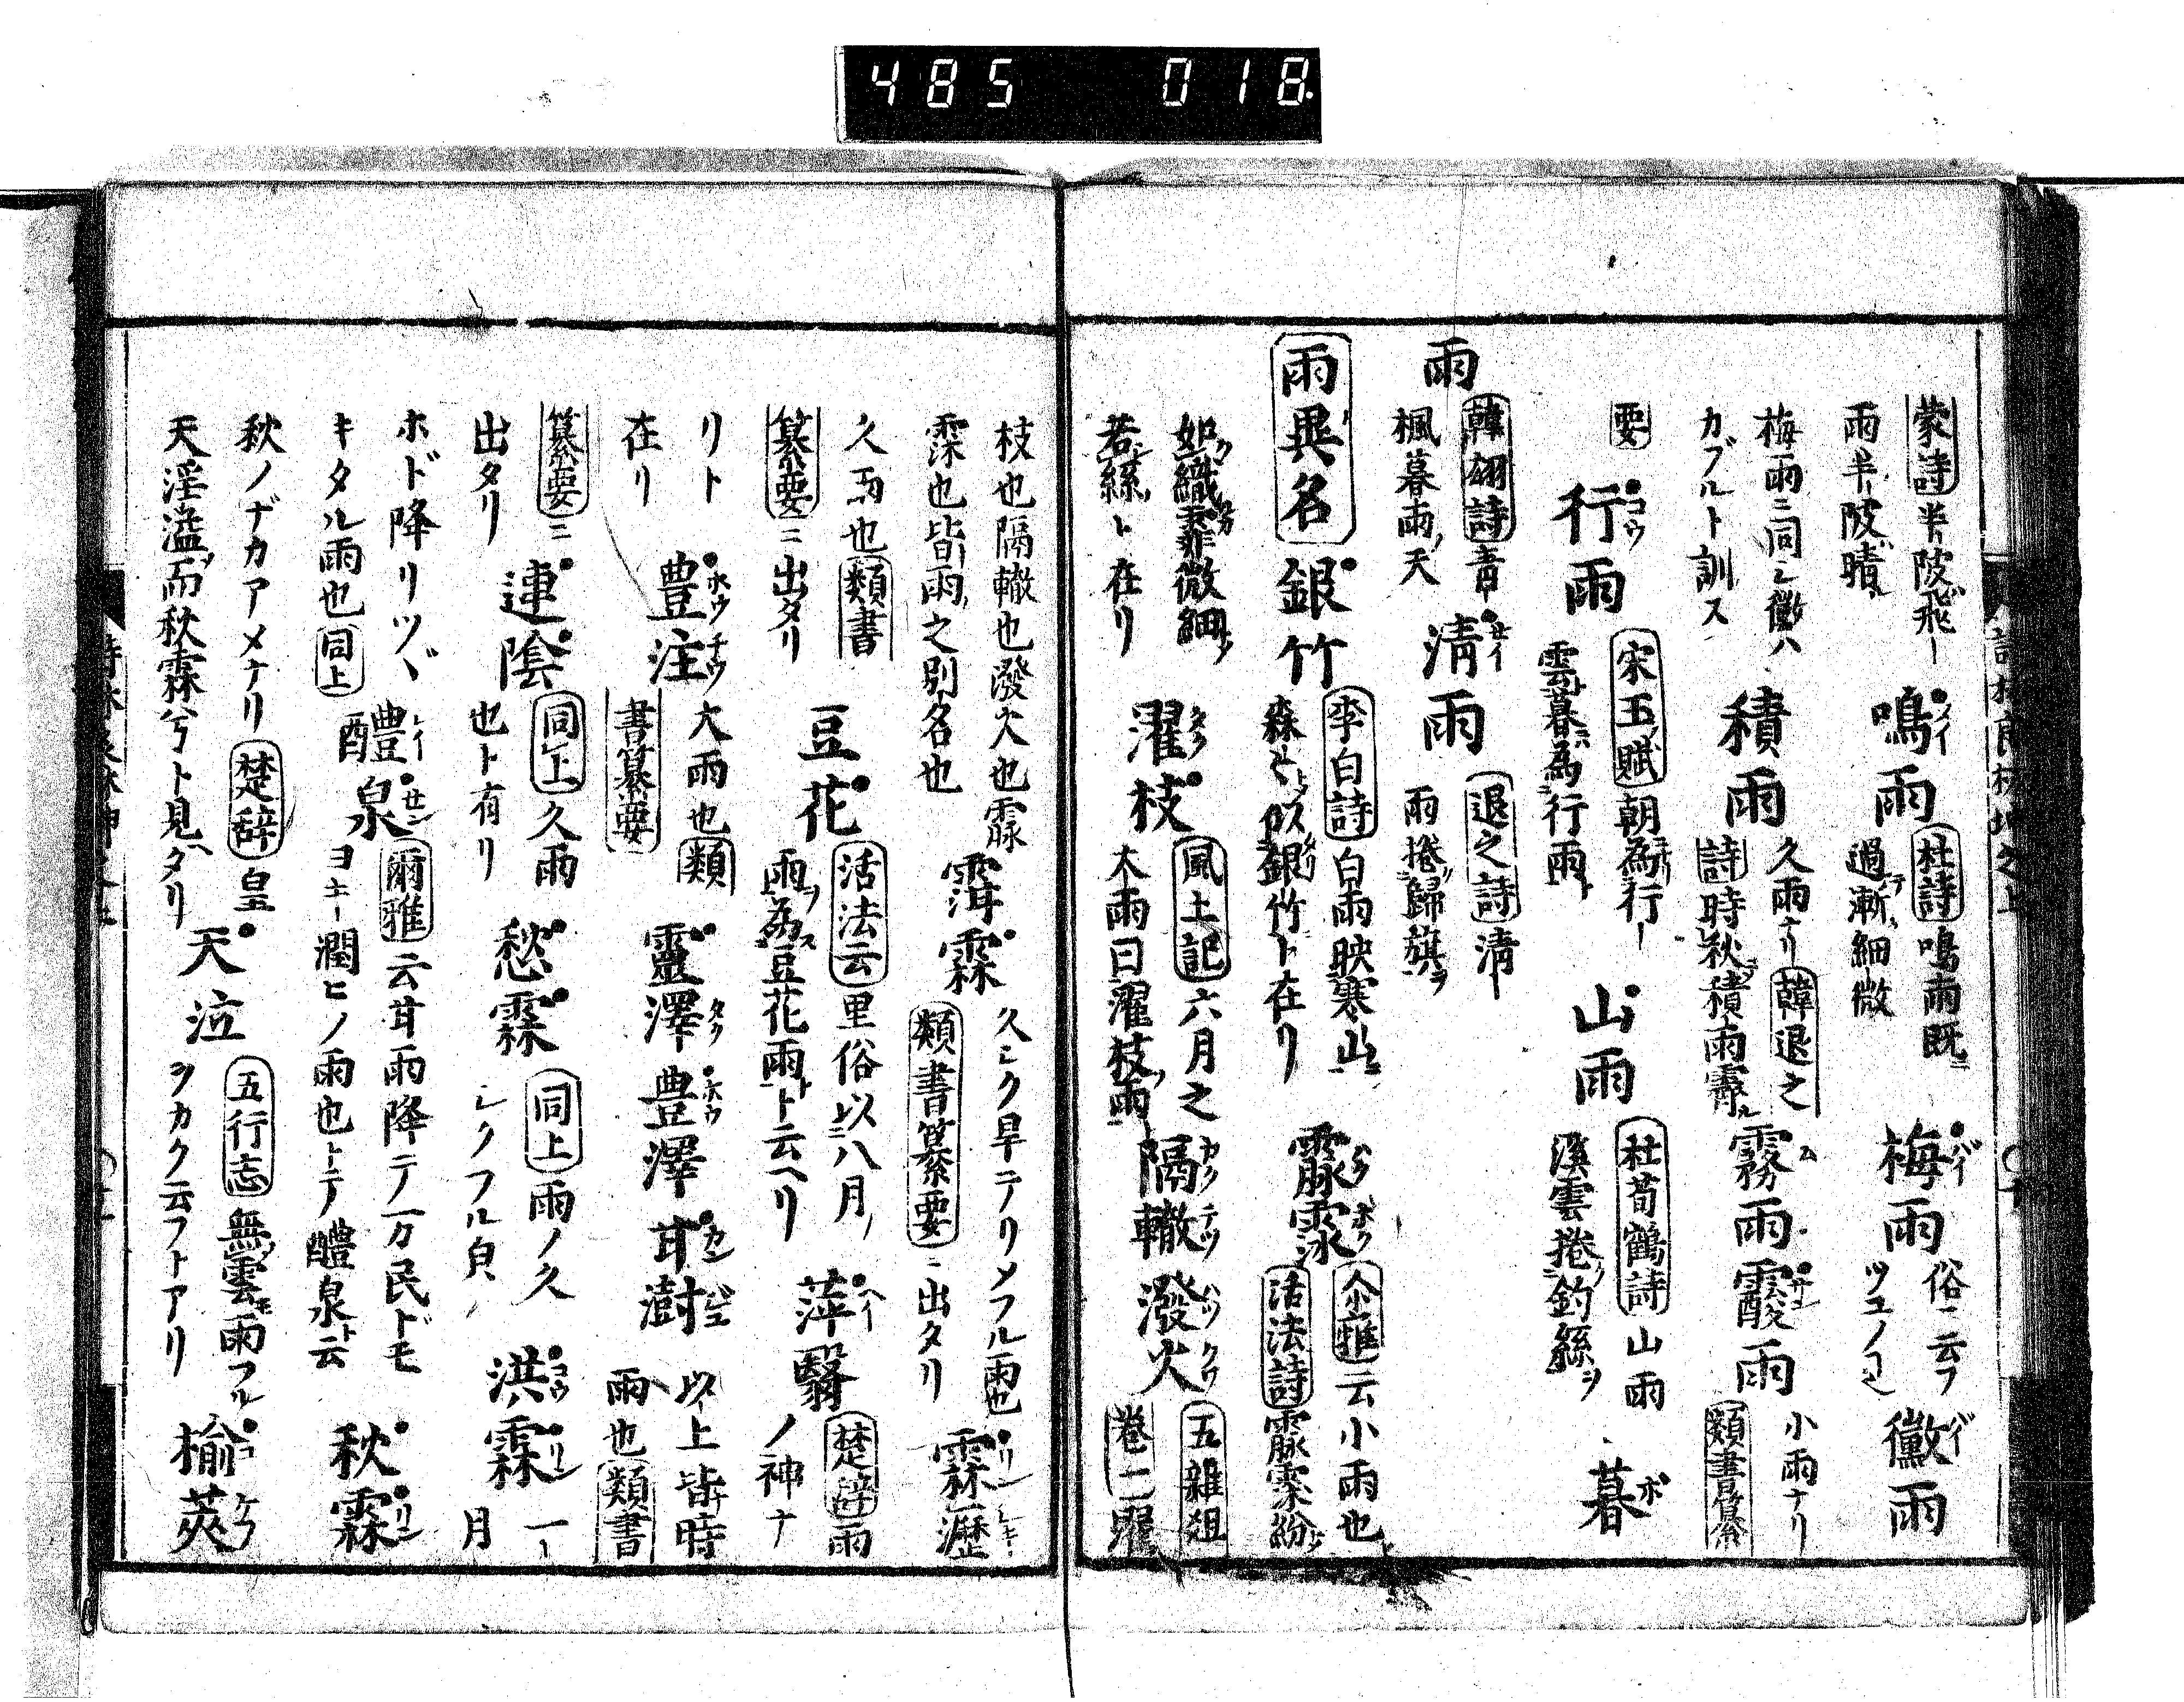 485 018
蒙詩半陂飛
雨半陂晴
鳴雨
杜詩鳴雨既
過漸細微
梅雨
俗ニ云フ
ツユノコト
黴雨
梅雨ニ同シ黴ハ
カブルト訓ス
積雨
久雨ナリ韓退之
詩時秋積雨霽
霧雨
小雨ナリ
類書纂
要
行雨
宋玉賦朝為行
雲暮為行雨
山雨
杜荀鶴詩山雨
溪雲捲釣絲ヲ
暮
雨
韓翃詩青
楓暮雨ノ天
清雨
退之詩清
雨捲歸旗ヲ
雨異名
銀竹
李白詩白雨映寒山
森々以銀竹ト在リ
霢霂
尒雅云小雨也
活法詩霢霂紛
如織霏微細
若絲ト在リ
濯枝
風土記六月之
大雨曰濯枝雨
隔轍
潑火
五雜俎
巻二濯
枝也隔轍也潑火也霢
霂也皆雨之別名也
霖
久シク旱ニテリメフル雨也
類書纂要ニ出タリ
霖瀝
久雨也類書
纂要ニ出タリ
豆花
活法云里俗以八月ノ
雨為豆花雨ト云ヘリ
萍翳
楚辭雨
ノ神ナ
リト
在リ
豊注
大雨也類
書纂要
靈澤
豊澤
甘澍
以上皆時
雨也類書
纂要ニ
出タリ
連陰
同上久雨
也ト有リ
愁霖
同上雨ノ久
シクフル皃
洪霖
一
月
ホド降リツヾ
キタル雨也同上
醴泉
爾雅云甘雨降テ万民ドモ
ヨキ潤ヒノ雨也トテ醴泉ト云
秋霖
秋ノナカアメナリ楚辞皇
天淫溢而秋霖兮ト見ヘタリ
天泣
五行志無雲雨フル
ヲカク云フトアリ
榆莢